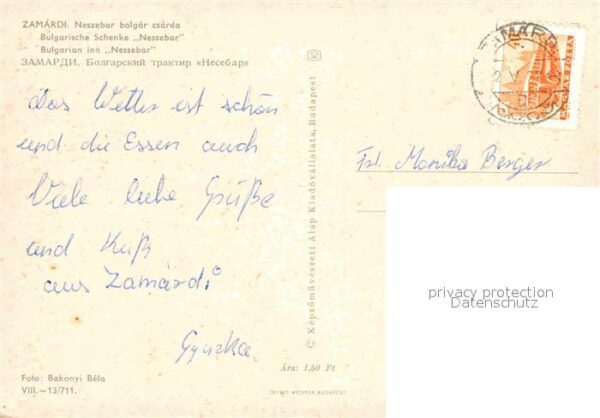 ZAMÁRDI. Neszebar bolgár csárda
Bulgarische Schenke „Nessebar"
Bulgarian inn „Nessebar"
ЗАМАРДИ. Болгарский трактир «Несебар»
Das Wetter ist schön
und die Essen auch
Viele liebe Grüße
und Kuß
aus Zamárdi
Gyuszka.
Foto: Bakonyi Béla
VIII.—13/711.
© Képzőművészeti Alap Kiadóvállalata, Budapest
Ára: 1,50 Ft
OFFSET NYOMDA, BUDAPEST
ZAMÁRDI
MAGYAR POSTA
Frl. Monika Berger
privacy protection
Datenschutz